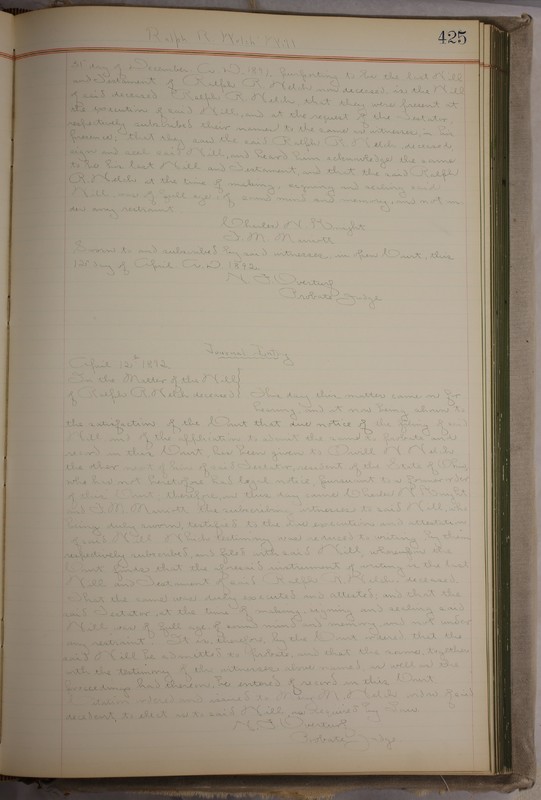 Ralph R. Welch Will
425
31st day of December A. D. 1891, purporting to be the last Will
and Testament of Ralph R. Welch now deceased, as the Will
of said deceased Ralph R. Welch, that they were present at
the execution of said Will, and at the request of the testator,
respectively subscribed their names to the same as witnesses in his
presence; that they saw the said Ralph R. Welch execute,
sign and seal said Will, and heard him acknowledge the same
to be his last Will and Testament, and that the said Ralph
R. Welch at the time of making, signing and sealing said
Will, was of full age, of sound mind and memory, and not un-
der any restraint.
Charles H. Knight
J. M. Merrott
Sworn to and subscribed by said witnesses, in open Court, this
12th day of April A. D. 1892.
Probate Judge
Journal Entry
April 12th 1892
In the Matter of the Will
of Ralph R. Welch deceased
This day this matter came on for
hearing and it now being shown to
the satisfaction of the Court that due notice of the filing of said
Will and of the application to admit the same to Probate and
record in this Court has been given to H. Welch
the other next of kin of said Testator, resident of the State of Ohio,
who has not heretofore had legal notice pursuant to a former order
of this Court; therefore, on this day came Charles H. Knight
and J. M. Merrott the subscribing witnesses to said Will, who
being duly sworn, testified to the due execution and attestation
of said Will. Which testimony was reduced to writing by them
respectively subscribed, and filed with said Will, whereupon the
Court finds that the aforesaid instrument of writing is the last
Will and Testament of said Ralph R. Welch, deceased,
that the same was duly executed and attested, and that the
said Testator, at the time of making, signing and sealing said
Will, was of full age, of sound mind and memory, and not under
any restraint. It is, therefore, by the Court ordered that the
said Will be admitted to Probate, and that the same, together
with the testimony of the witnesses above named, as well as the
proceedings had thereon, be entered of record in this Court.
Citation ordered and issued to Welch widow of said
decedent, to elect as to said Will as required by law.
Probate Judge